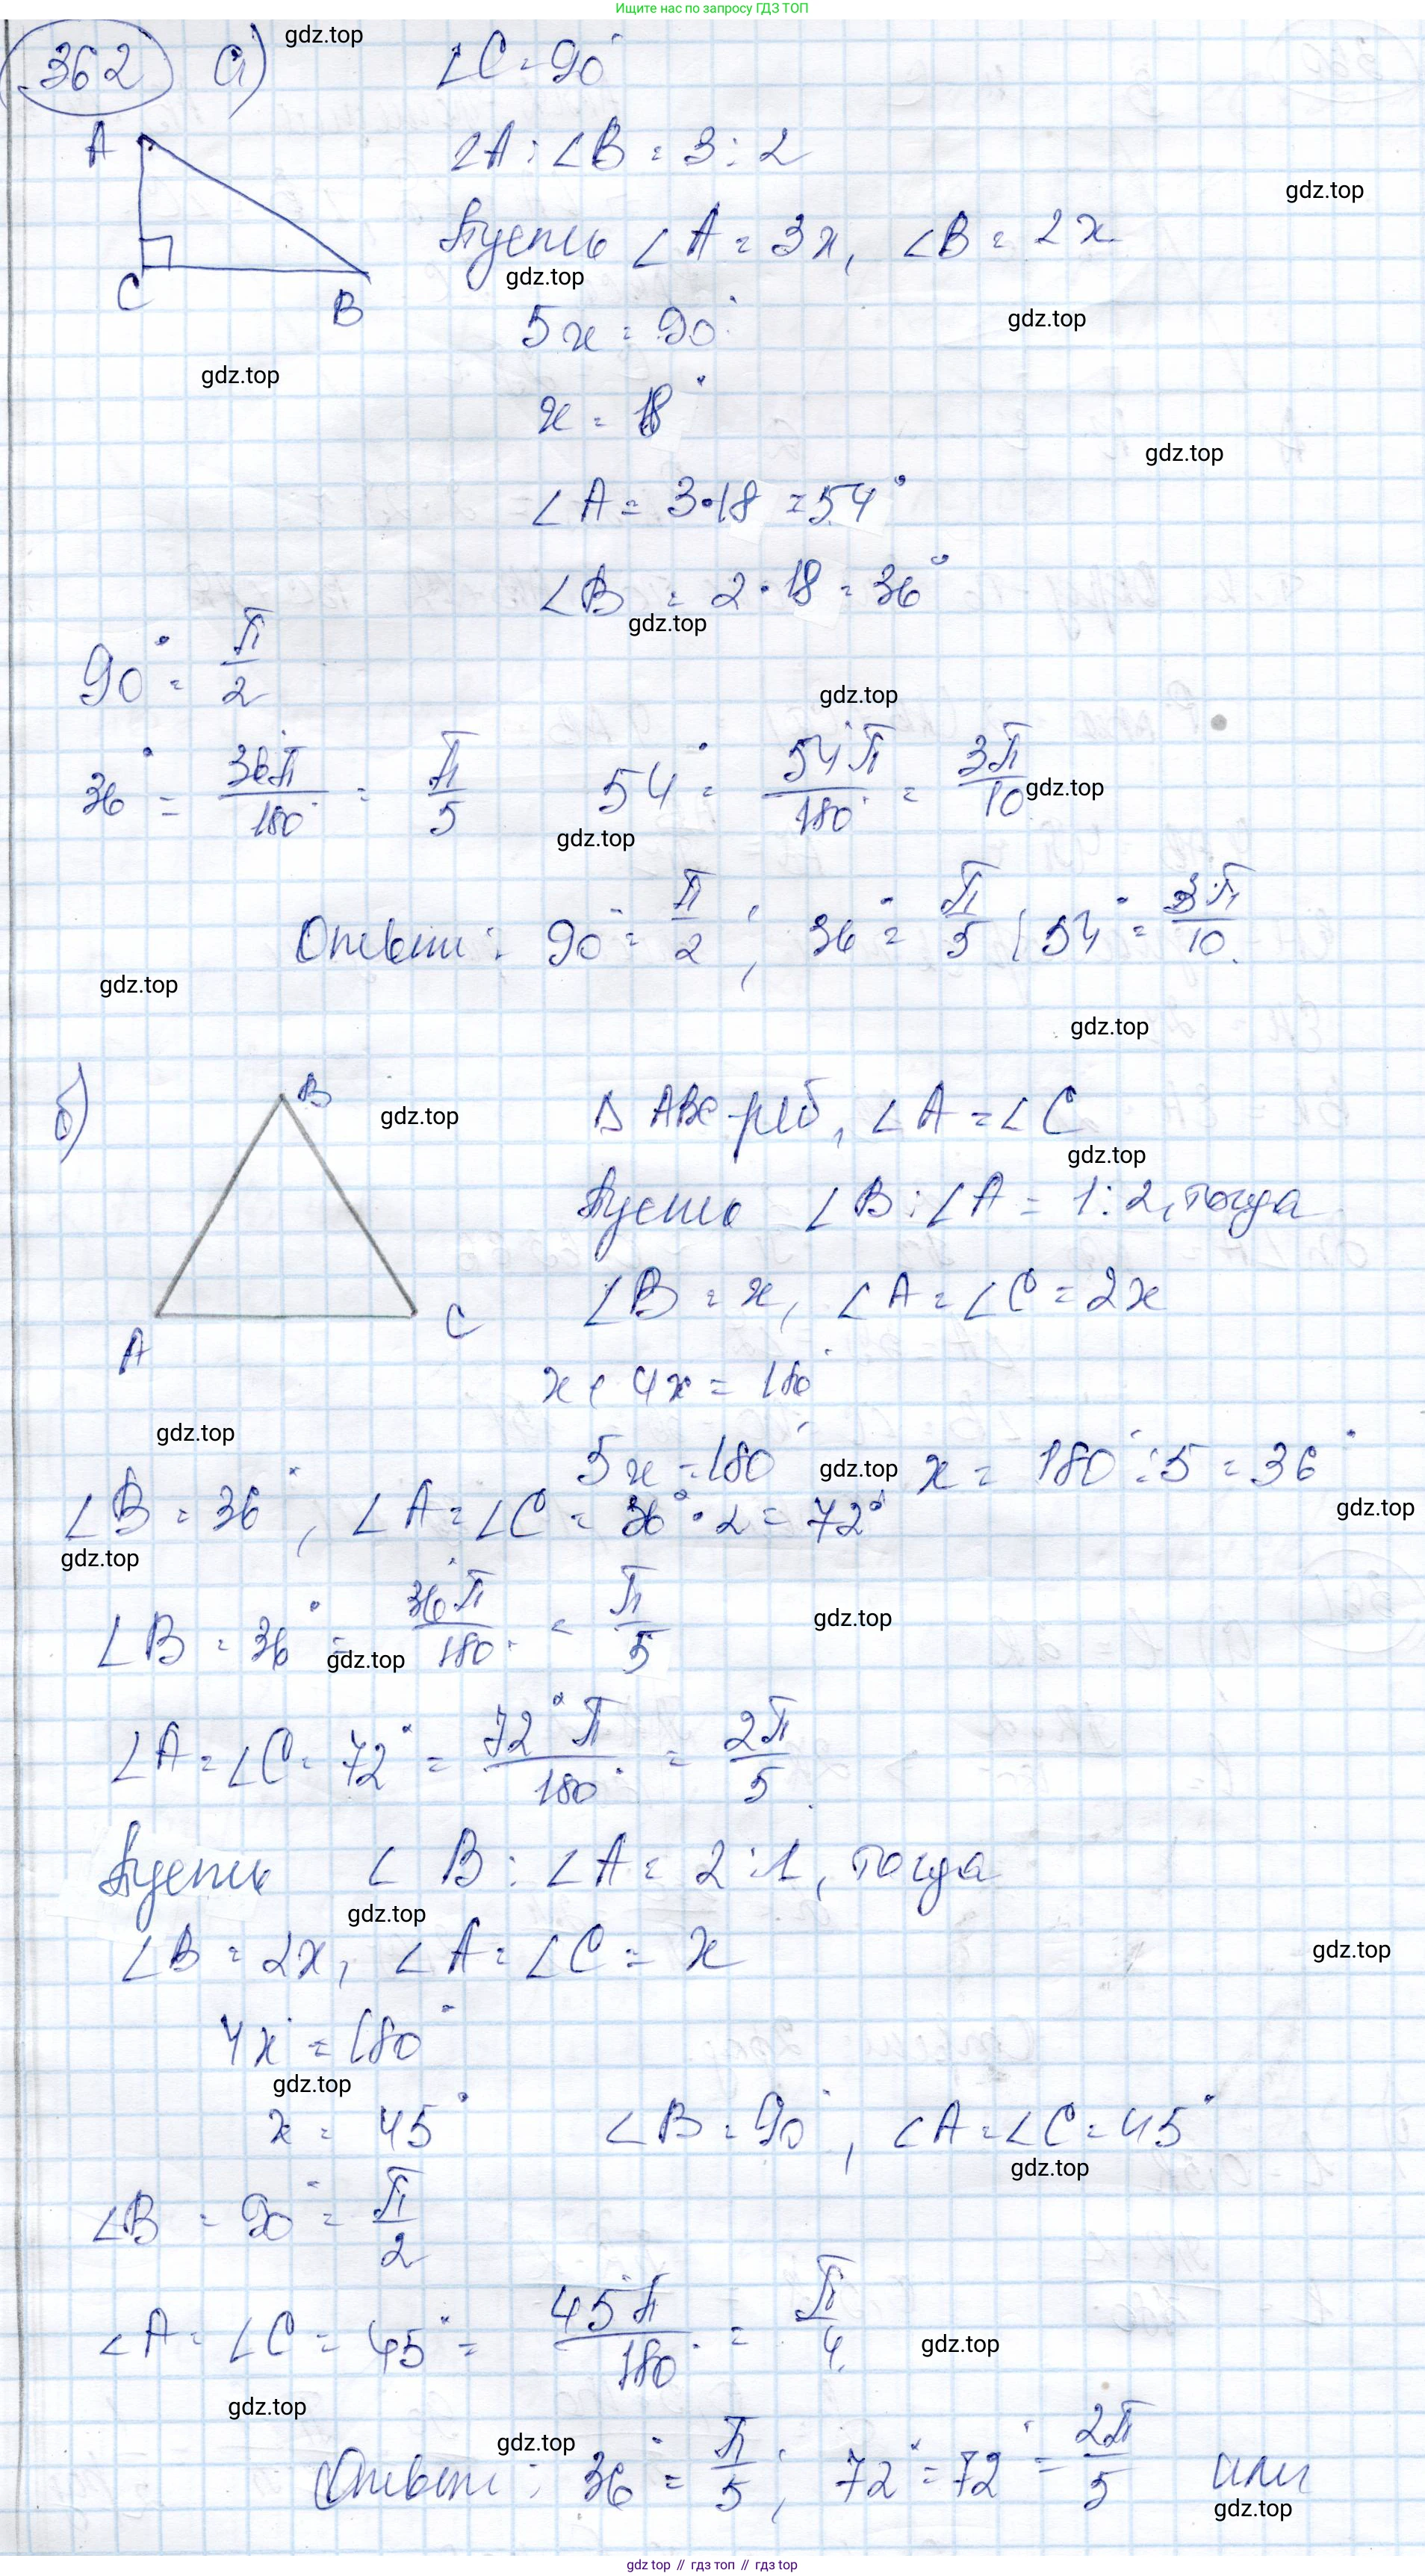 Ищите нас по запросу ГДЗ ТОП
362 а) gdz.top ∠C = 90°
A ∠A : ∠B = 3 : 2
gdz.top
Пусть ∠A = 3x, ∠B = 2x
gdz.top
C B 5x = 90° gdz.top
gdz.top
x = 18°
gdz.top
∠A = 3·18 = 54°
∠B = 2·18 = 36°
gdz.top
90° = π/2
gdz.top
36° = 36°π/180° = π/5 54° = 54°π/180° = 3π/10 gdz.top
gdz.top
Ответ: 90° = π/2; 36° = π/5; 54° = 3π/10.
gdz.top
gdz.top
б) B gdz.top Δ ABC-р/б, ∠A = ∠C
gdz.top
Пусть ∠B : ∠A = 1 : 2, тогда
∠B = x, ∠A = ∠C = 2x
A C
x + 4x = 180°
gdz.top
5x = 180° gdz.top x = 180° : 5 = 36°
∠B = 36°, ∠A = ∠C = 36°·2 = 72° gdz.top
gdz.top
∠B = 36° = 36°π/180° = π/5 gdz.top
gdz.top
∠A = ∠C = 72° = 72°π/180° = 2π/5.
Пусть ∠B : ∠A = 2 : 1, тогда
gdz.top
∠B = 2x, ∠A = ∠C = x gdz.top
4x = 180°
gdz.top
x = 45° ∠B = 90°, ∠A = ∠C = 45°
gdz.top
∠B = 90° = π/2
∠A = ∠C = 45° = 45°π/180° = π/4. gdz.top
gdz.top
gdz.top
Ответ: 36° = π/5; 72° = 72° = 2π/5 или
gdz.top
gdz.top // гдз топ // gdz.top